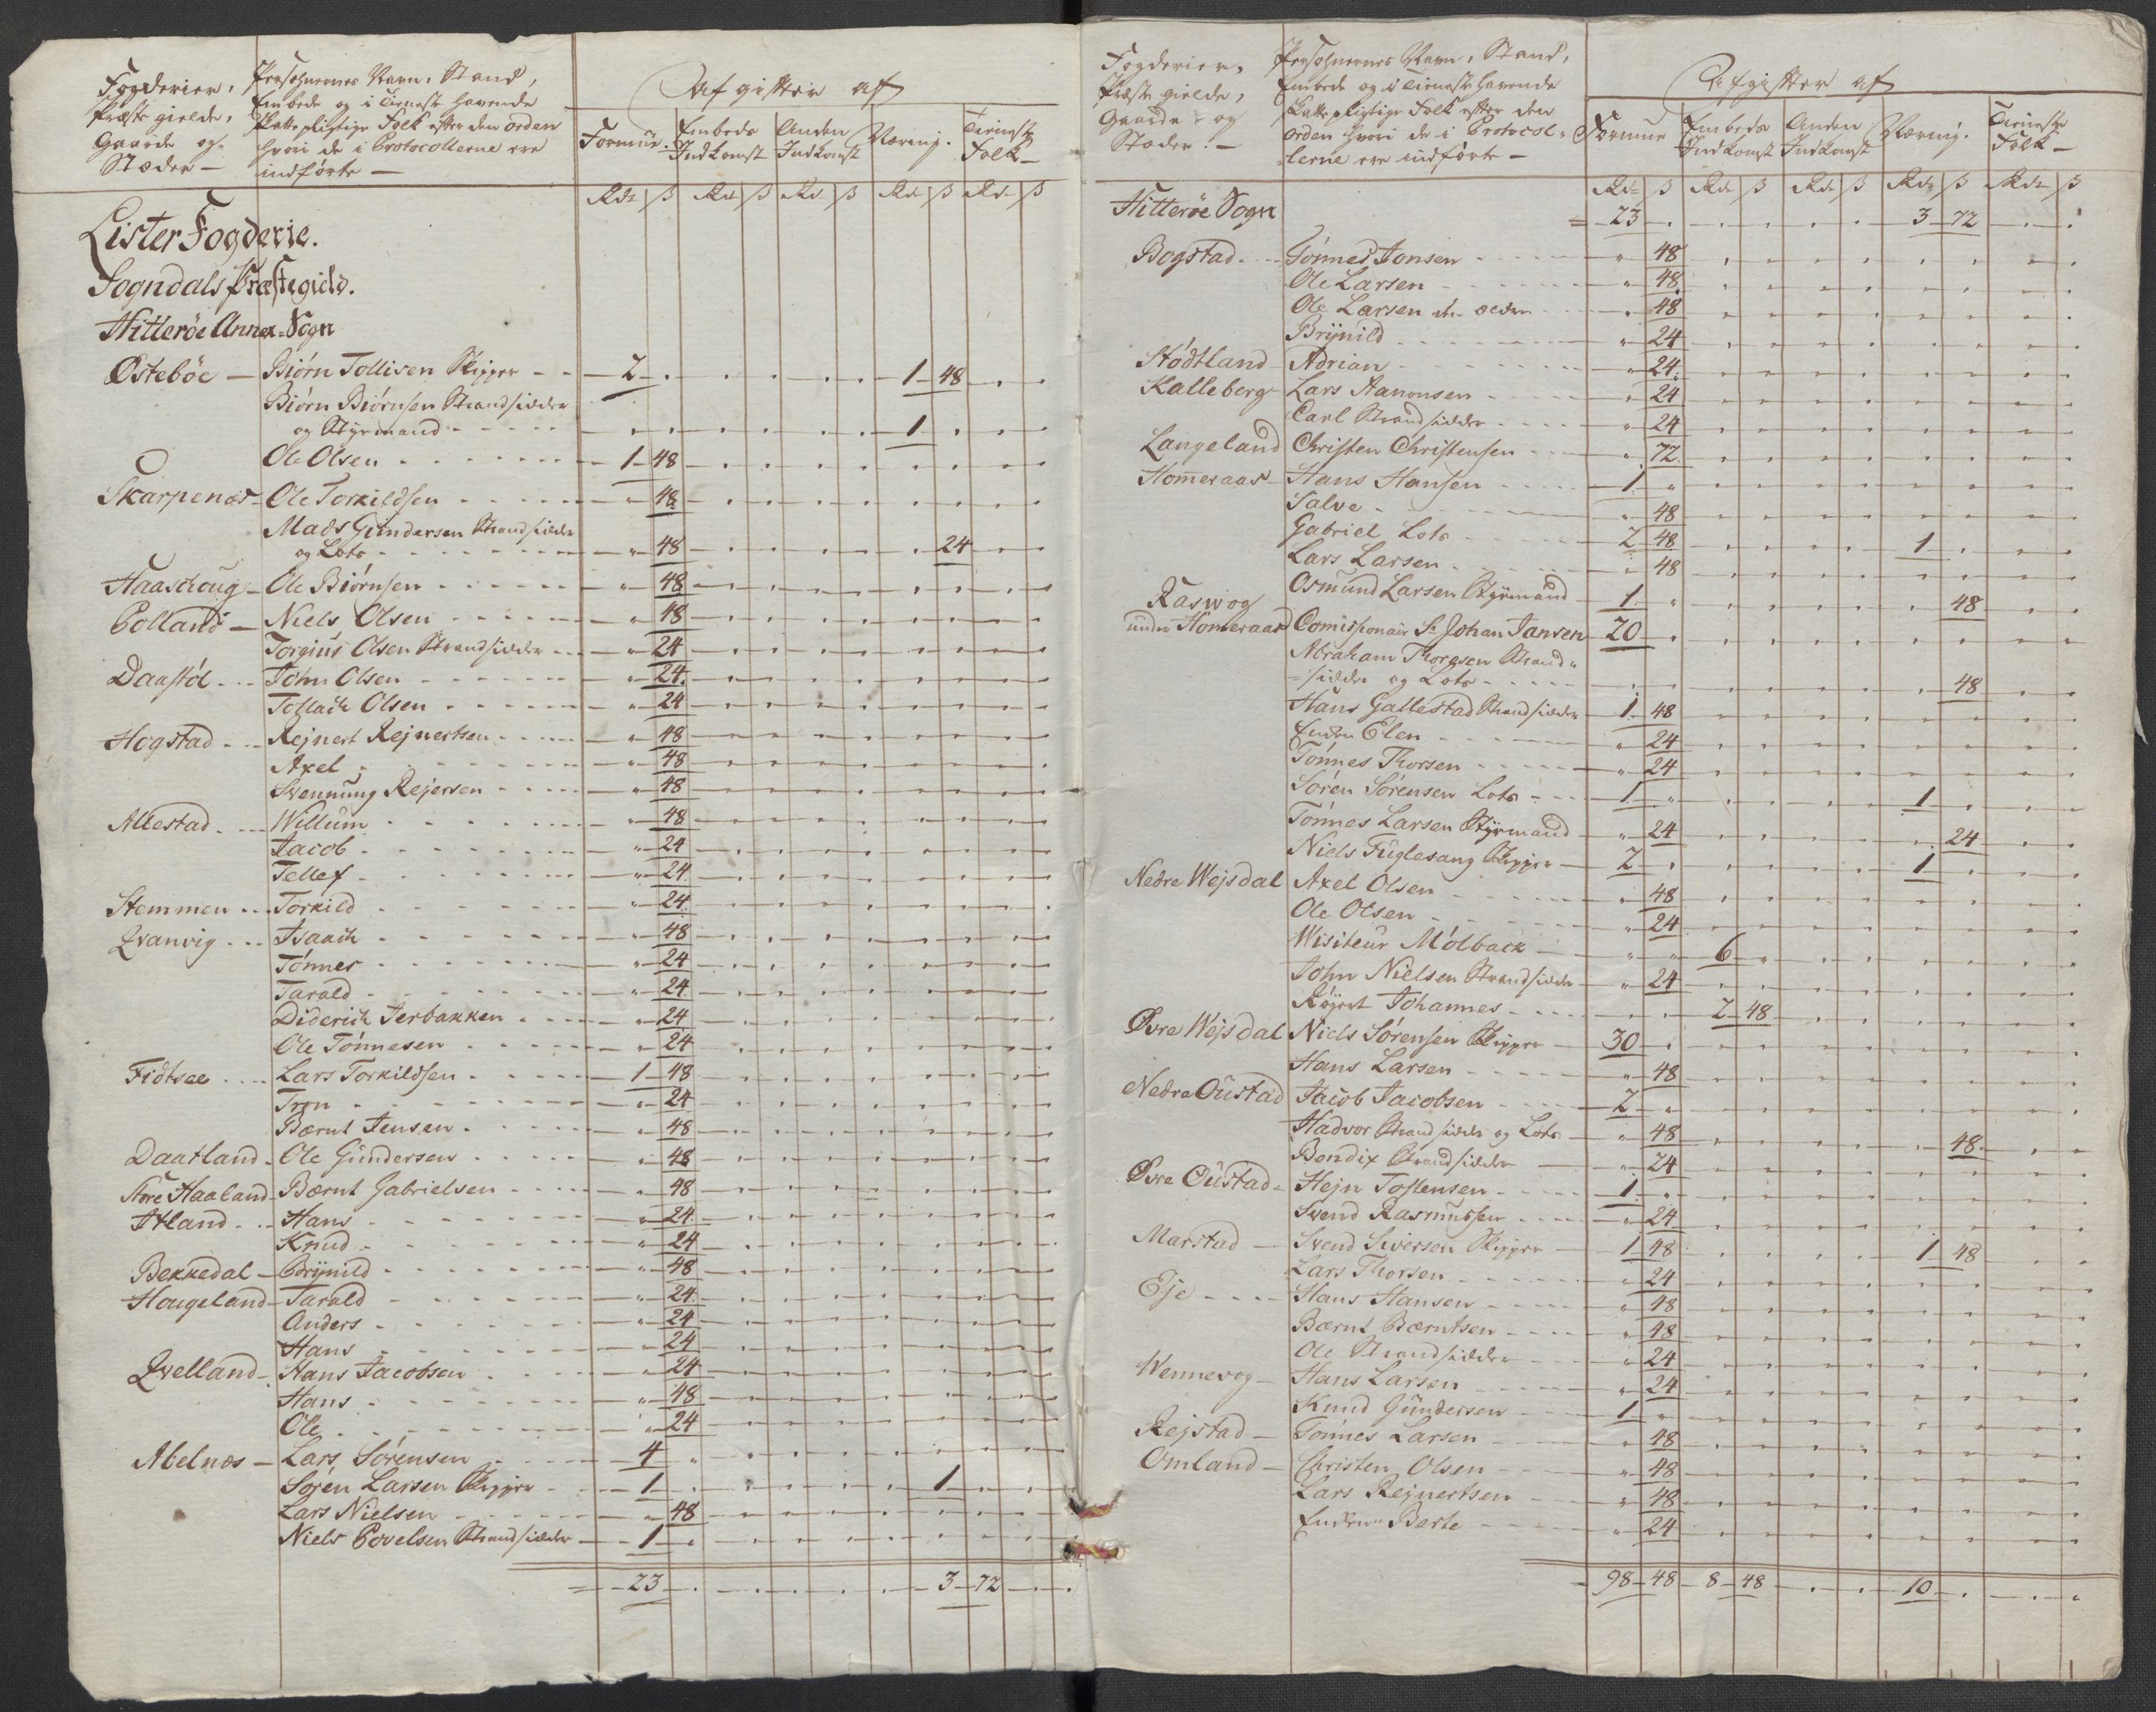 Fogderier,
Præste gielde,
Gaarde og
Stæder —
Persohnernes Navn, Stand,
Embede og i Tieneste havende
Skattepligtige Folk efter den orden
hvori de i Protocollerne ere
indførte —
Afgifter af
Formue. Embeds Indkomst Anden Indkomst Næring. Tieneste Folk —
Rdr ß Rdr ß Rd ß Rdr ß Rdr ß
Lister Fogderie.
Sogndals Præstegield.
Hitterøe Annex-Sogn
Østebøe — Biørn Tollisen Skipper - - 2 . . . . . 1 48 . .
Biørn Biørnsen Strandsidder
og Styrmand - - . . . . . . 1 . . .
Ole Olsen - - 1 48 . . . . . . . .
Skarpenæs - Ole Torkildsen - - " 48 . . . . . . . .
Mads Gundersen Strandsidder
og Lots - - " 48 . . . . . 24 . .
Haaschoug - Ole Biørnsen - - " 48 . . . . . . . .
Polland — Niels Olsen - - " 48 . . . . . . . .
Torgius Olsen Strandsidder - - " 24 . . . . . . . .
Daastøl - - John Olsen - - " 24 . . . . . . . .
Tollach Olsen - - " 24 . . . . . . . .
Hogstad - - Rejnert Rejnertsen - - " 48 . . . . . . . .
Axel - - " 48 . . . . . . . .
Svennung Rejersen - - " 48 . . . . . . . .
Allestad - - Willum - - " 48 . . . . . . . .
Jacob - - " 24 . . . . . . . .
Tellef - - " 24 . . . . . . . .
Stemmen - - Torkild - - " 24 . . . . . . . .
Qvanvig - - Isaach - - " 48 . . . . . . . .
Tønnes - - " 24 . . . . . . . .
Tarald - - " 24 . . . . . . . .
Diderich Jerbakken - - " 24 . . . . . . . .
Ole Tønnesen - - " 24 . . . . . . . .
Fidtsee - - Lars Torkildsen - - 1 48 . . . . . . . .
Tron - - " 24 . . . . . . . .
Bærnt Jensen - - " 48 . . . . . . . .
Daatland - Ole Gundersen - - " 48 . . . . . . . .
Store Haaland - Bærnt Gabrielsen - - " 48 . . . . . . . .
Atland - - Hans - - " 24 . . . . . . . .
Knud - - " 24 . . . . . . . .
Bekkedal - Brynild - - " 48 . . . . . . . .
Hougeland - Tarald - - " 24 . . . . . . . .
Anders - - " 24 . . . . . . . .
Hans - - " 24 . . . . . . . .
Qvelland - Hans Jacobsen - - " 24 . . . . . . . .
Hans - - " 48 . . . . . . . .
Ole - - " 24 . . . . . . . .
Abelnæs — Lars Sørensen - - 4 " . . . . . . . .
Søren Larsen Skipper - - 1 . . . . . 1 . . .
Lars Nielsen - - " 48 . . . . . . . .
Niels Povelsen Strandsidder - - 1 . . . . . . . . .
= 23 . . . . . 3 72 . .
Fogderier,
Præste gielde,
Gaarde - og
Stæder. —
Persohnernes Navn, Stand,
Embede og i Tieneste havende
Skattepligtige Folk efter den
orden hvori de i Protocol-
lerne ere indførte —
Afgifter af
Formue Embeds Indkomst Anden Indkomst Næring. Tieneste Folk —
Rdr ß Rdr ß Rdr ß Rdr ß Rdr ß
Hitterøe Sogn = 23 . . . . . 3 72 . .
Bogstad - - Tønnes Jonsen - - " 48 . . . . . . . .
Ole Larsen - - " 48 . . . . . . . .
Ole Larsen den ældre - - " 48 . . . . . . . .
Brynild - - " 24 . . . . . . . .
Stødtland - Adrian - - " 24 . . . . . . . .
Kalleberg - Lars Aanonsen - - " 24 . . . . . . . .
Carl Strandsidder - - " 24 . . . . . . . .
Langeland Christen Christensen - - " 72 . . . . . . . .
Homeraas - Hans Hansen - - 1 " . . . . . . . .
Salve - - " 48 . . . . . . . .
Gabriel Lots - - 2 48 . . . . 1 . . .
Lars Larsen - - " 48 . . . . . . . .
Rasvog
under Homeraas
Osmund Larsen Styrmand - 1 " . . . . . 48 . .
Comissionair Sr Johan Jansen 20 . . . . . . . . .
Abraham Thoresen Strand-
sidder og Lots - - . . . . . . . 48 . .
Hans Gallestad Strandsidder 1 48 . . . . . . . .
Enken Elen - - " 24 . . . . . . . .
Tønnes Thorsen - - " 24 . . . . . . . .
Søren Sørensen Lots - - 1 " . . . . 1 . . .
Tønnes Larsen Styrmand - " 24 . . . . . 24 . .
Niels Fuglesang Skipper - 2 . . . . . 1 . . .
Nedre Wejsdal Axel Olsen - - " 48 . . . . . . . .
Ole Olsen - - " 24 . . . . . . . .
Wisiteur Mølback - " " 6 " . . . . . .
John Nielsen Strandsidder " 24 . . . . . . . .
Røyert Johannes - - . . 2 48 . . . . . .
Øvre Wejsdal Niels Sørensen Skipper - 30 . . . . . . . . .
Hans Larsen - - " 48 . . . . . . . .
Nedre Oustad Jacob Jacobsen - - 2 " . . . . . . . .
Hadvor Strandsidder og Lots " 48 . . . . . 48 . .
Bendix Strandsidder - " 24 . . . . . . . .
Øvre Oustad - Hejn Tostensen - - 1 " . . . . . . . .
Svend Rasmussen - - " 24 . . . . . . . .
Marstad - Svend Siversen Skipper - 1 48 . . . . 1 48 . .
Lars Thorsen - - " 24 . . . . . . . .
Eje - - Hans Hansen - - " 48 . . . . . . . .
Bærnt Bærntsen - - " 48 . . . . . . . .
Ole Strandsidder - " 24 . . . . . . . .
Wennevog - Hans Larsen - - " 24 . . . . . . . .
Knud Gundersen - - 1 " . . . . . . . .
Rejstad - Tønnes Larsen - - " 48 . . . . . . . .
Omland - Christen Olsen - - " 48 . . . . . . . .
Lars Rejnertsen - - " 48 . . . . . . . .
Enken Berte - - " 24 . . . . . . . .
- 98 48 8 48 . . 10 . . .